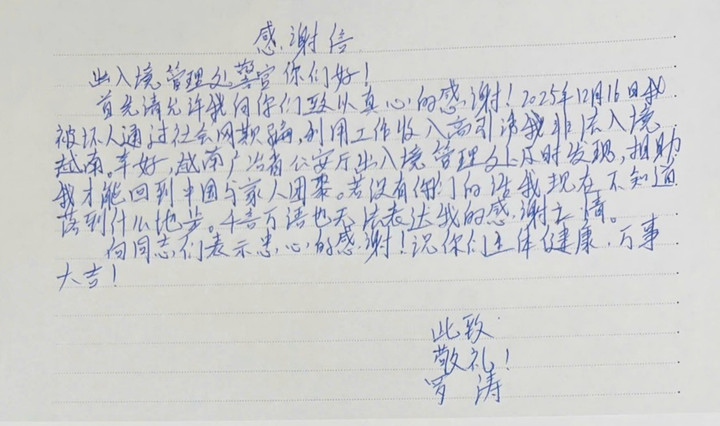 感谢信
出入境管理处警官你们好！
首先请允许我向你们致以真心的感谢！2025年12月16日我
被坏人通过社会网欺骗，利用工作收入高引诱我非法入境
越南。幸好，越南广治省公安厅出入境管理处及时发现，相助
我才能回到中国与家人团聚。若没有你们的话我现在不知道
落到什么地步。千言万语也无法表达我的感谢之情。
向同志们表示忠心的感谢！祝你们主体健康，万事
大吉！
此致
敬礼！
罗涛